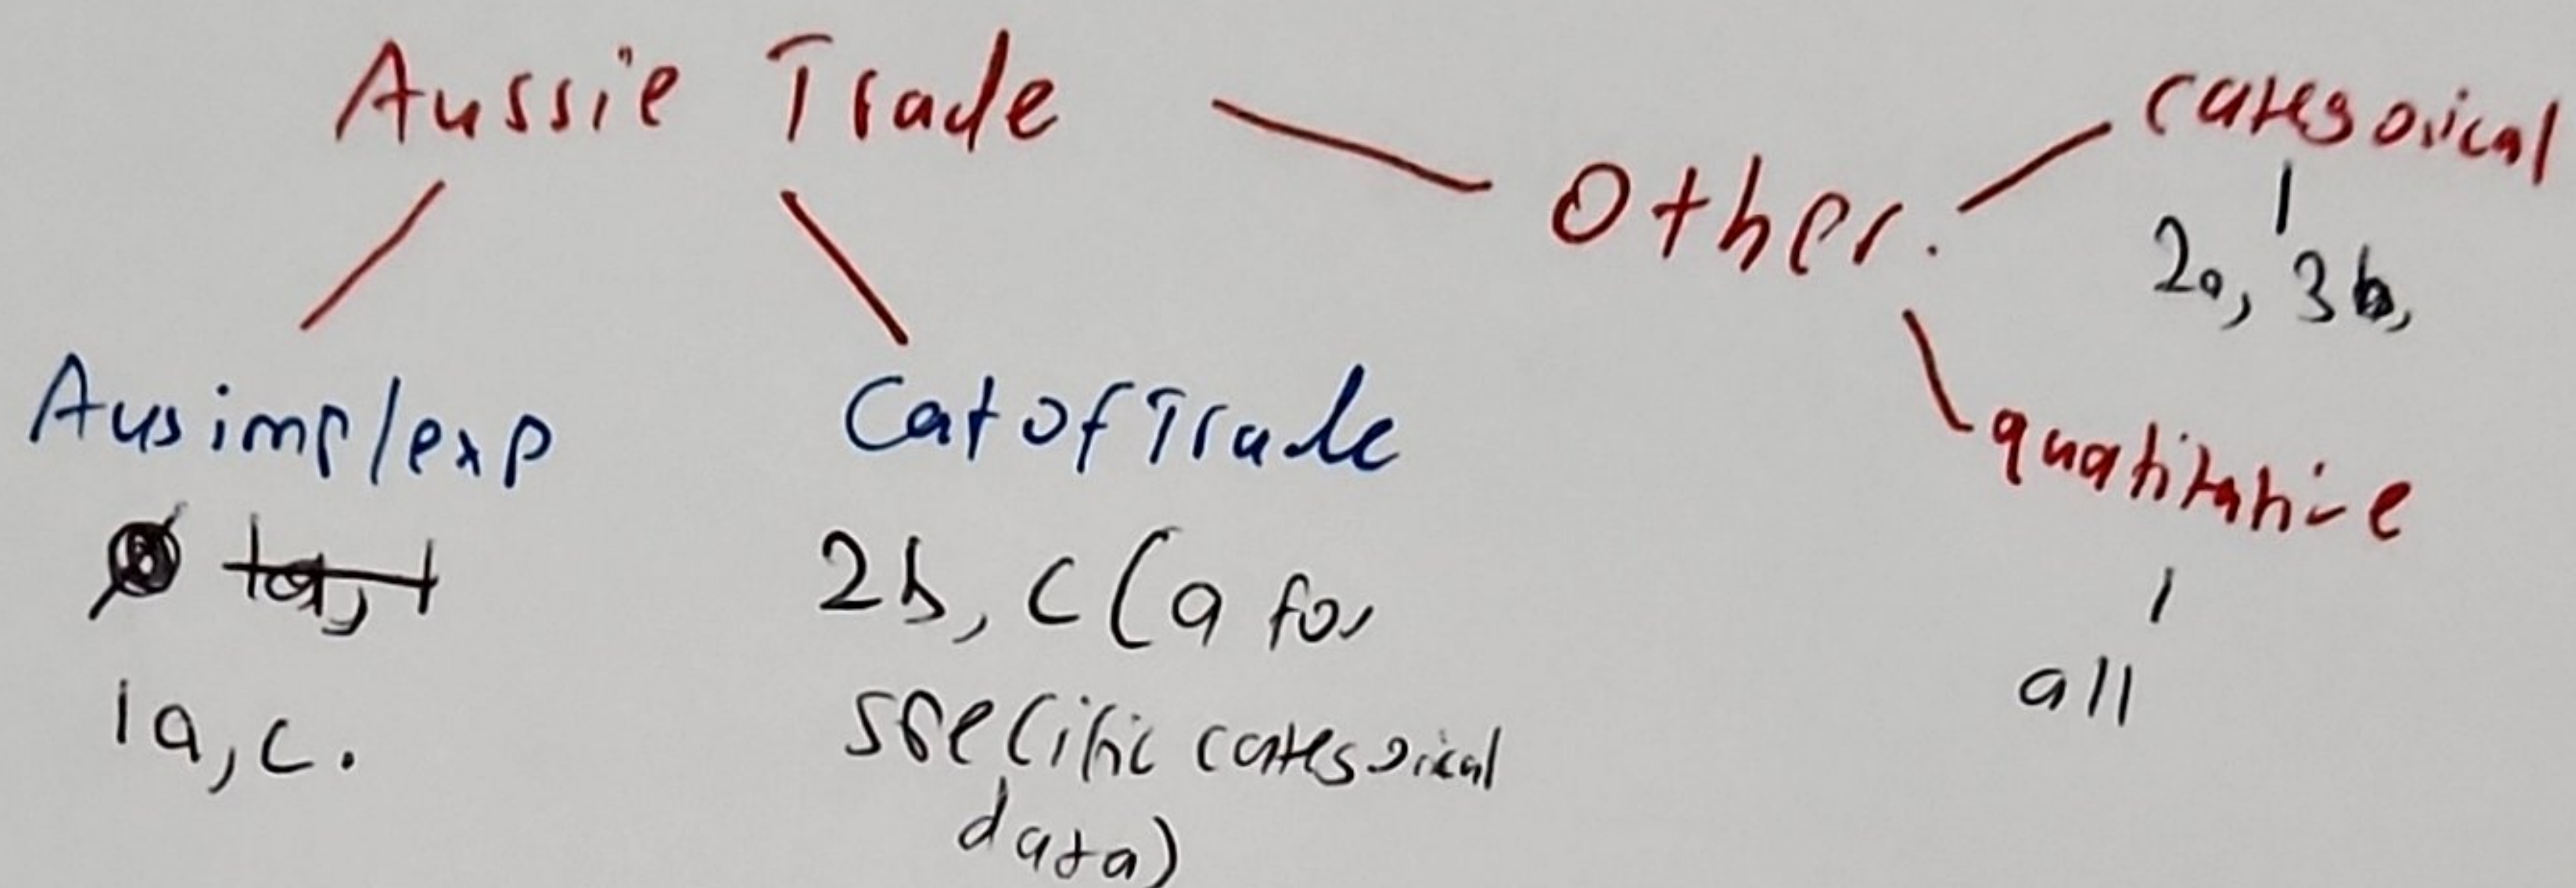 Aussie Trade
Other.
categorical
2a, 3b,
quatitative
all
Aus imp/exp
1a, c.
Cat of Trade
2b, c (a for
specific categorical
data)